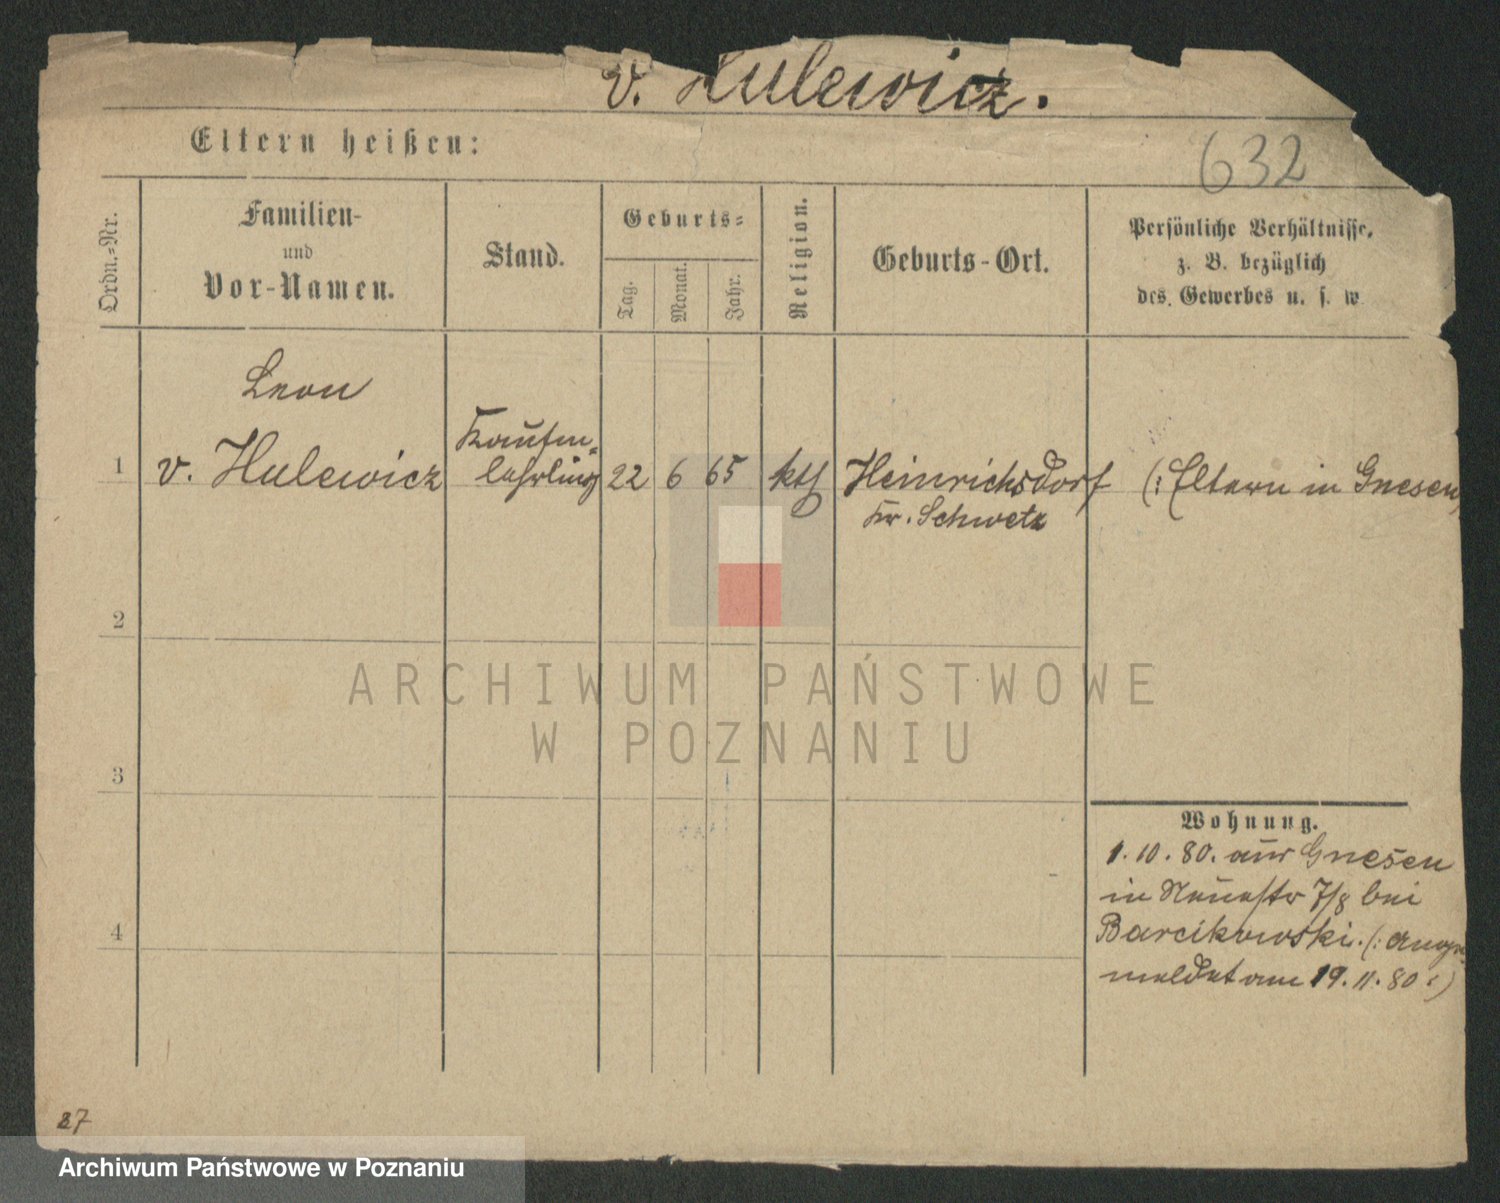 v. Hulewicz.
Eltern heißen:
632
Ordn.-Nr.
Familien-
und
Vor-Namen.
Stand.
Geburts-
Tag.
Monat.
Jahr.
Religion.
Geburts-Ort.
Persönliche Verhältnisse,
z. B. bezüglich
des Gewerbes u. s. w.
Leon
1 v. Hulewicz
Kaufm.
lehrling
22 6 65 kth
Heinrichsdorf
Kr. Schwetz
(: Eltern in Gnesen
2
3
4
Wohnung.
1.10.80. aus Gnesen
in Neuestr 7/8 bei
Barcikowski. (: ange
meldet am 19.11.80 :)
27
ARCHIWUM PAŃSTWOWE
W POZNANIU
Archiwum Państwowe w Poznaniu